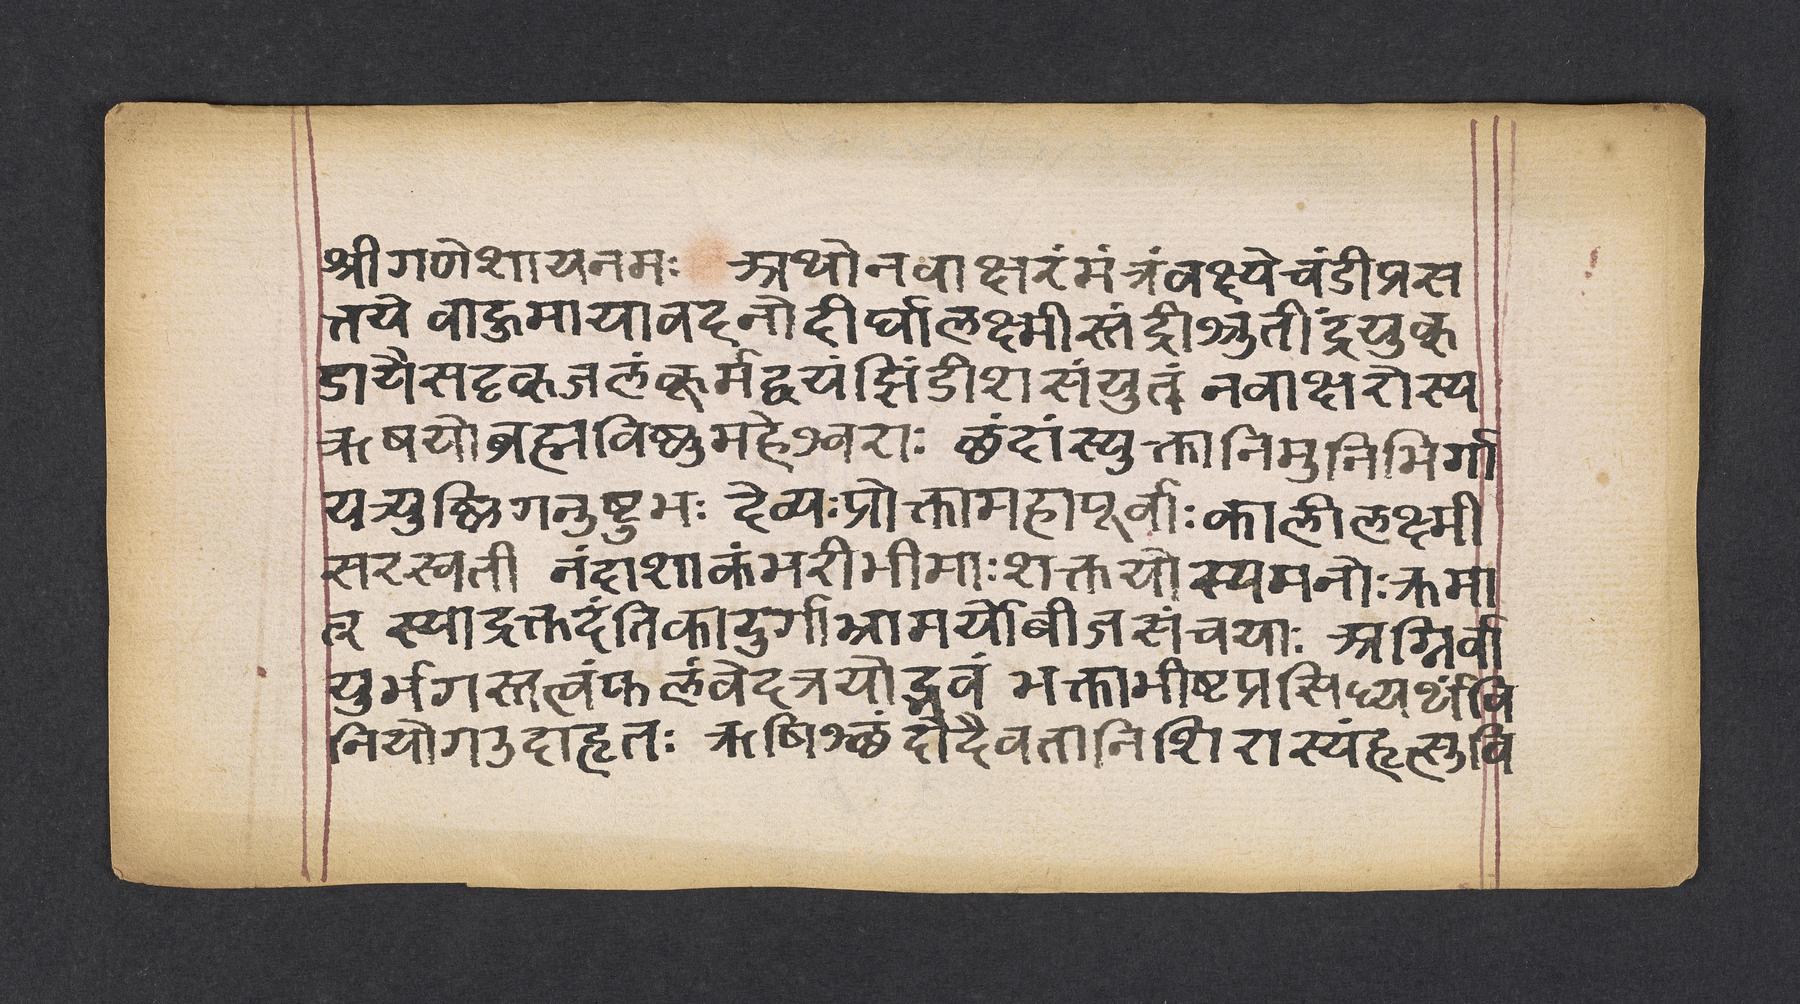 श्रीगणेशायनमः अथोनवाक्षरंमंत्रंवक्ष्येचंडीप्रस
त्तये वाङ्मायावदनोदीर्घालक्ष्मीस्तंद्रीश्रुतींद्रयुक्
डायैसदृक्जलंकूर्मद्वयंझिंडीशसंयुतं नवाक्षरोस्य
ऋषयोब्रह्मविष्णुमहेश्वराः छंदांस्युक्तानिमुनिभिर्गा
यत्र्युष्णिगनुष्टुभः देव्यःप्रोक्तामहापूर्वाःकालीलक्ष्मी
सरस्वती नंदाशाकंभरीभीमाःशक्तयोस्यमनोःक्रमा
त् स्याद्रक्तदंतिकादुर्गाभ्रामर्योबीजसंचयाः अग्निर्वा
युर्भगस्तत्वंफलंवेदत्रयोद्भवं भक्ताभीष्टप्रसिध्यर्थंवि
नियोगउदाहृतः ऋषिश्छंदोदैवतानिशिरास्यंहृत्सुवि